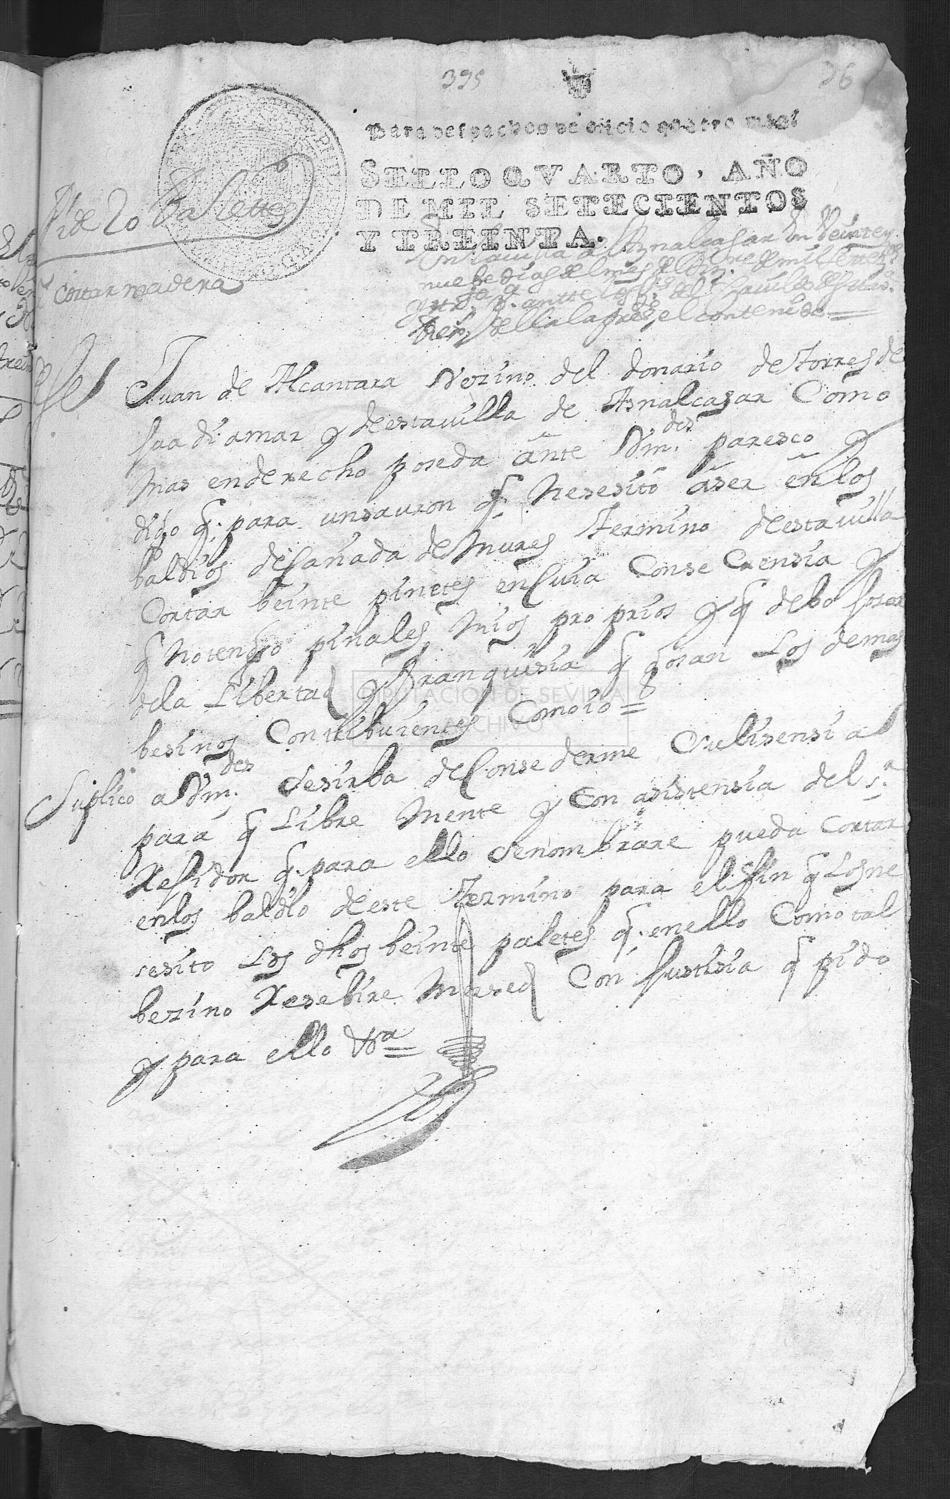 395
36
Para despachos de oficio quatro mrs̃
SELLO QVARTO, AÑO
DE MIL SETECIENTOS
Y TREINTA.
Pide 20 Paletes
cortar madera
En la villa de Asnalcasar en Veinte y
nuebe dias del mes de
el contenido
Juan de Alcantara Vezino del donario de torres de
guadiamar y destavilla de Asnalcasar Como
mas enderecho proseda ante Vm.des paresco y
digo q. para un sauron q. Nesesito aser en los
baldios de Cañada de Mures termino destavilla
Cortar beinte pinetes en Cuia Conse Cuensia y
q. no tengo pinales mios proprios y q. debo gosar
de la Libertad y franquisia q. gosan Los demas
besinos Contribuientes Como io =
Suplico a Vm.des se sirba de Consederme su lisensia
para q. Libre mente y Con asistensia del s.r
Rexidor q. para ello se nombrare pueda Cortar
en los baldio deste termino para el fin q. Los ne
sesito Los dhos beinte paletes q. en ello Como tal
bezino Resebire mersed Con justisia q. pido
y para ello &a =
DIPUTACION DE SEVILLA
ARCHIVO